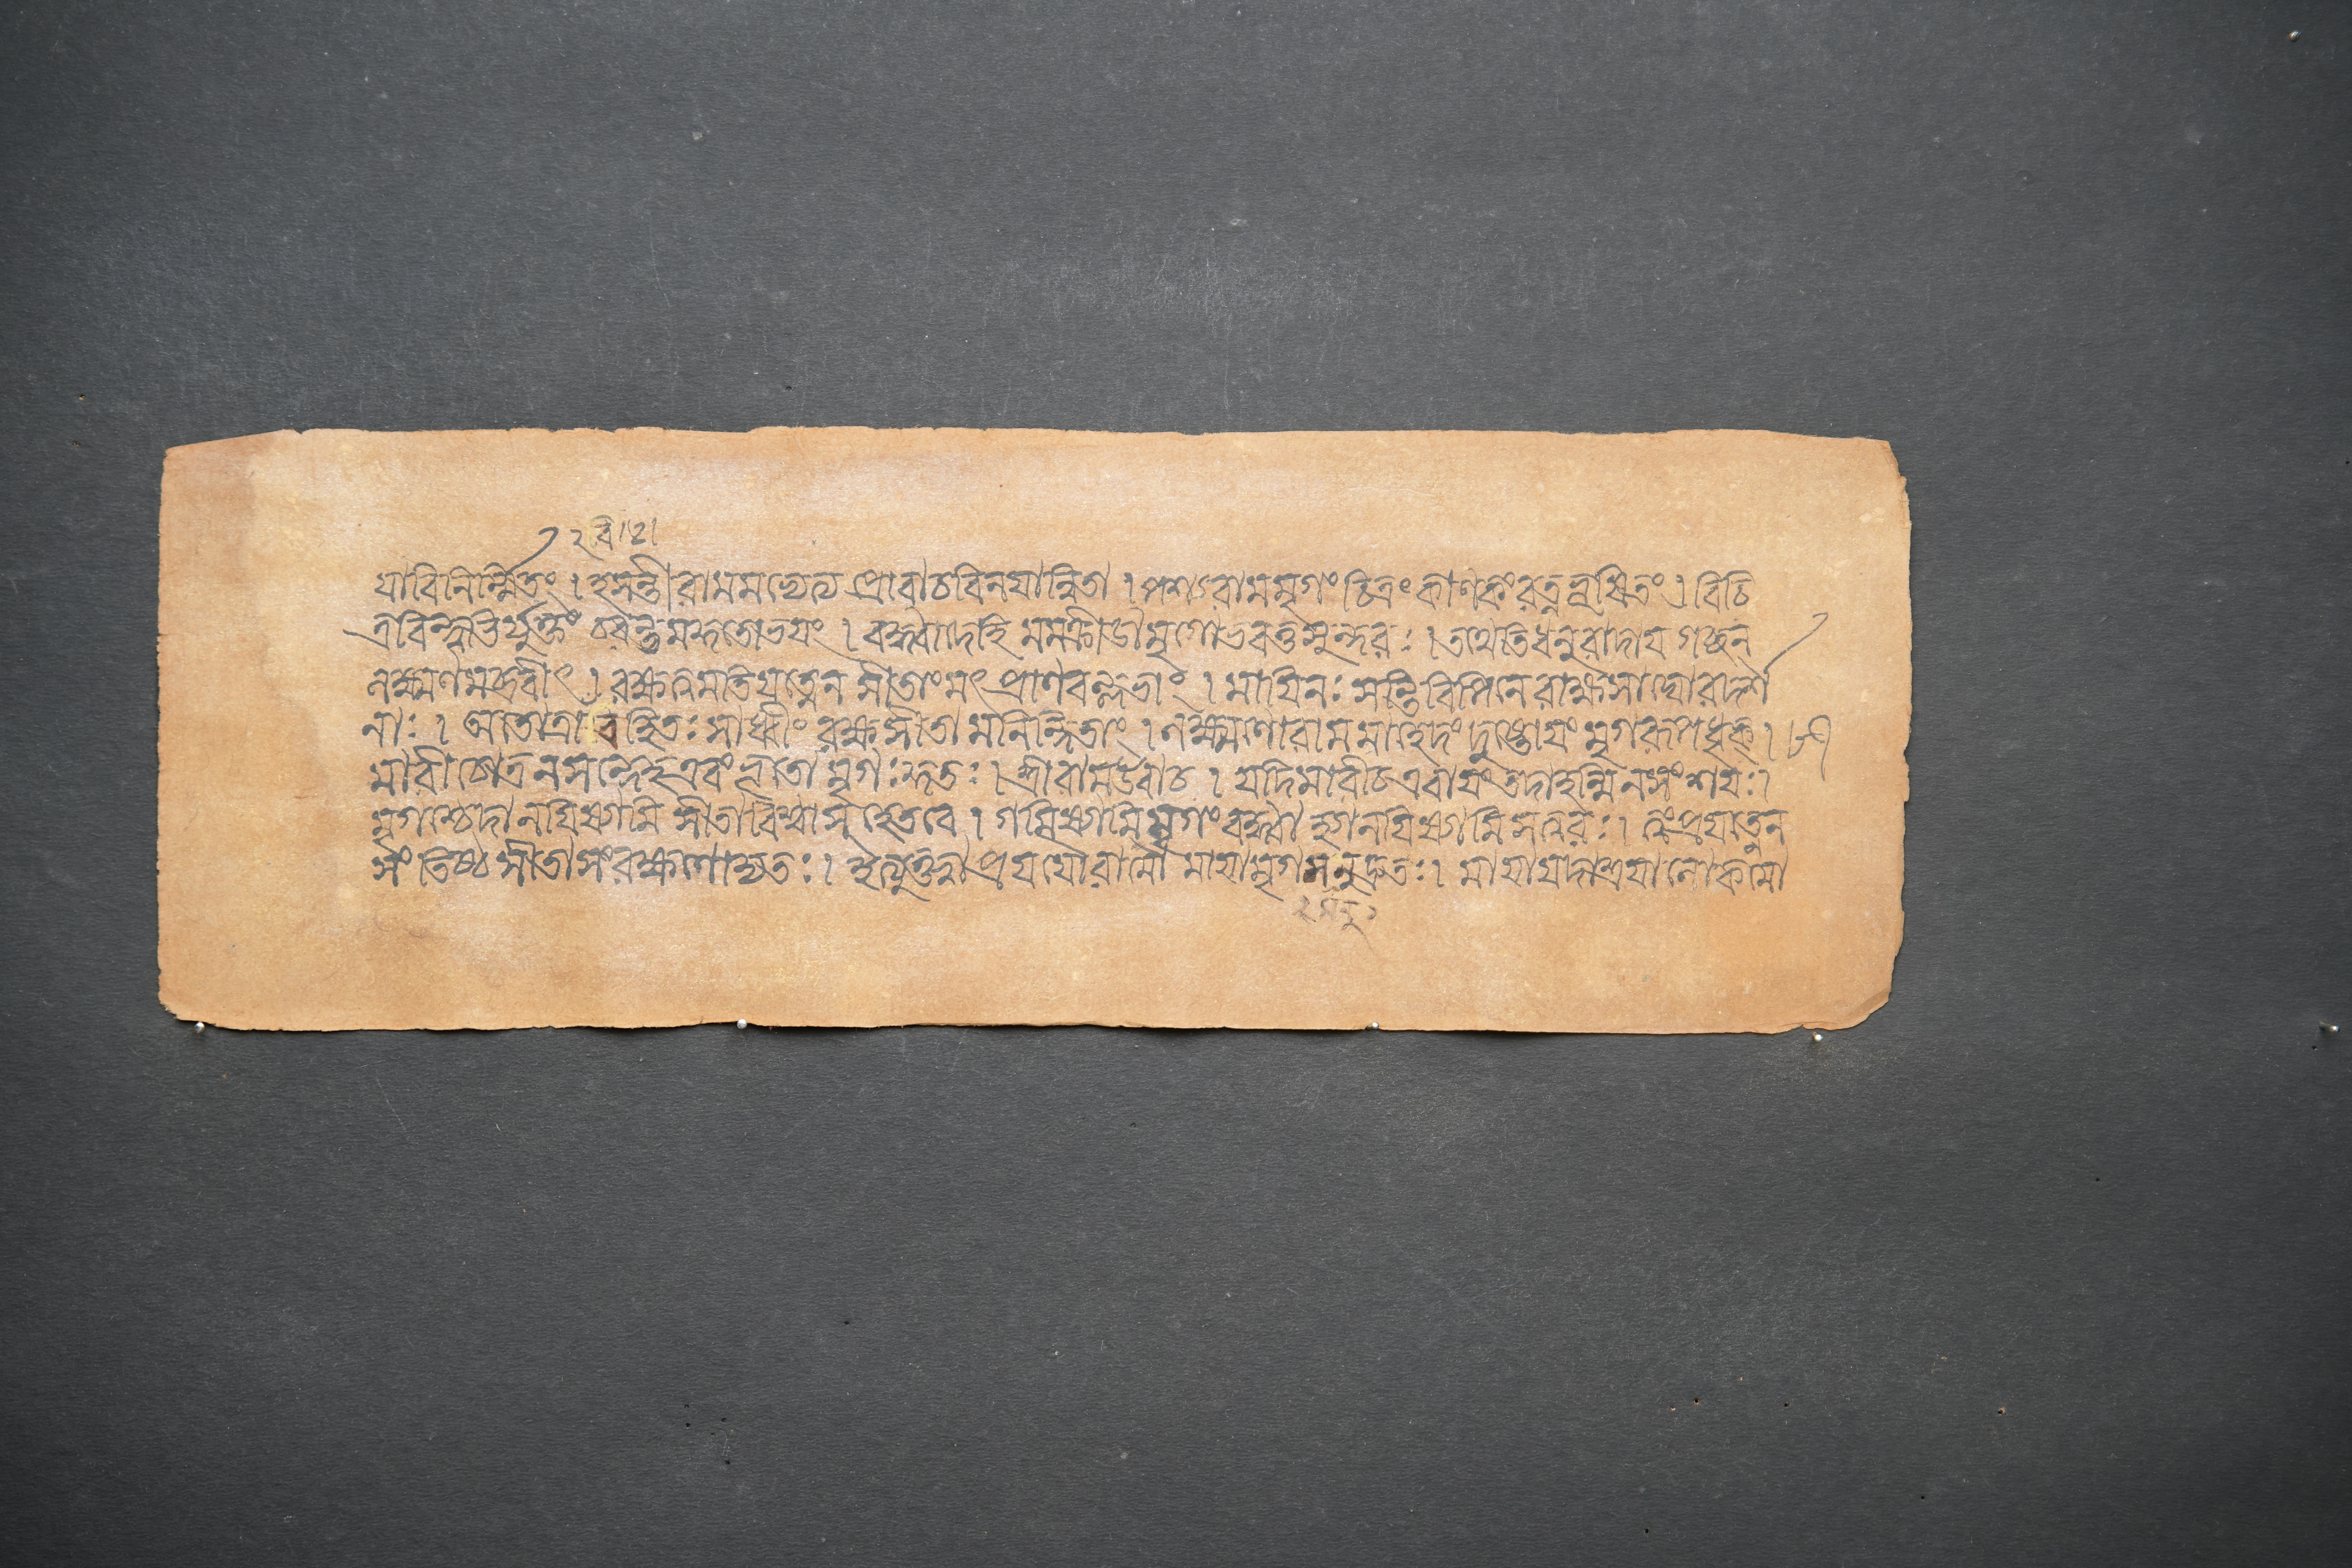 যাবিনির্ম্মিতং। হসন্তী রামমভ্যেত্য প্রোবাচ বিনযান্বিতা। পশ্য রামমৃগং চিত্রং কাণকং রত্নভূষিতং। বিচি
ত্রবিন্দুভির্যুক্তং চরন্তমকুতোভযং। বদ্ধ্বাদেহি মমক্রীডামৃগোভবতুসুন্দরঃ। তথেতিধনুরাদায গচ্ছন্
লক্ষ্মণমব্রবীৎ। রক্ষত্বমতিযত্নেন সীতাংমৎপ্রাণবল্লভাং। মাযিনঃ সন্তিবিপিনে রাক্ষসাঘোরদর্শ
নাঃ। অতোত্রাবহিতঃ সাধ্বীং রক্ষসীতামনিন্দিতাং। লক্ষ্মণোরামমাহেদং দুষ্টোযং মৃগরূপধৃক্।
মারীচোত্রনসন্দেহ এবংভূতো মৃগঃকুতঃ। শ্রীরামউবাচ। যদিমারীচ এবাযং তদাহন্মিনসংশযঃ।
মৃগশ্চেদানযিষ্যামি সীতাবিশ্বাসহেতবে। গমিষ্যামিমৃগং বদ্ধ্বা হ্যানযিষ্যামি সত্বরঃ। ত্বংপ্রযত্নেন
সংতিষ্ঠ সীতাসংরক্ষণোদ্যতঃ। ইত্যুক্ত্বা প্রযযৌরামো মাযামৃগমনুদ্রুতঃ। মাযাযদাশ্রযা লোকমো